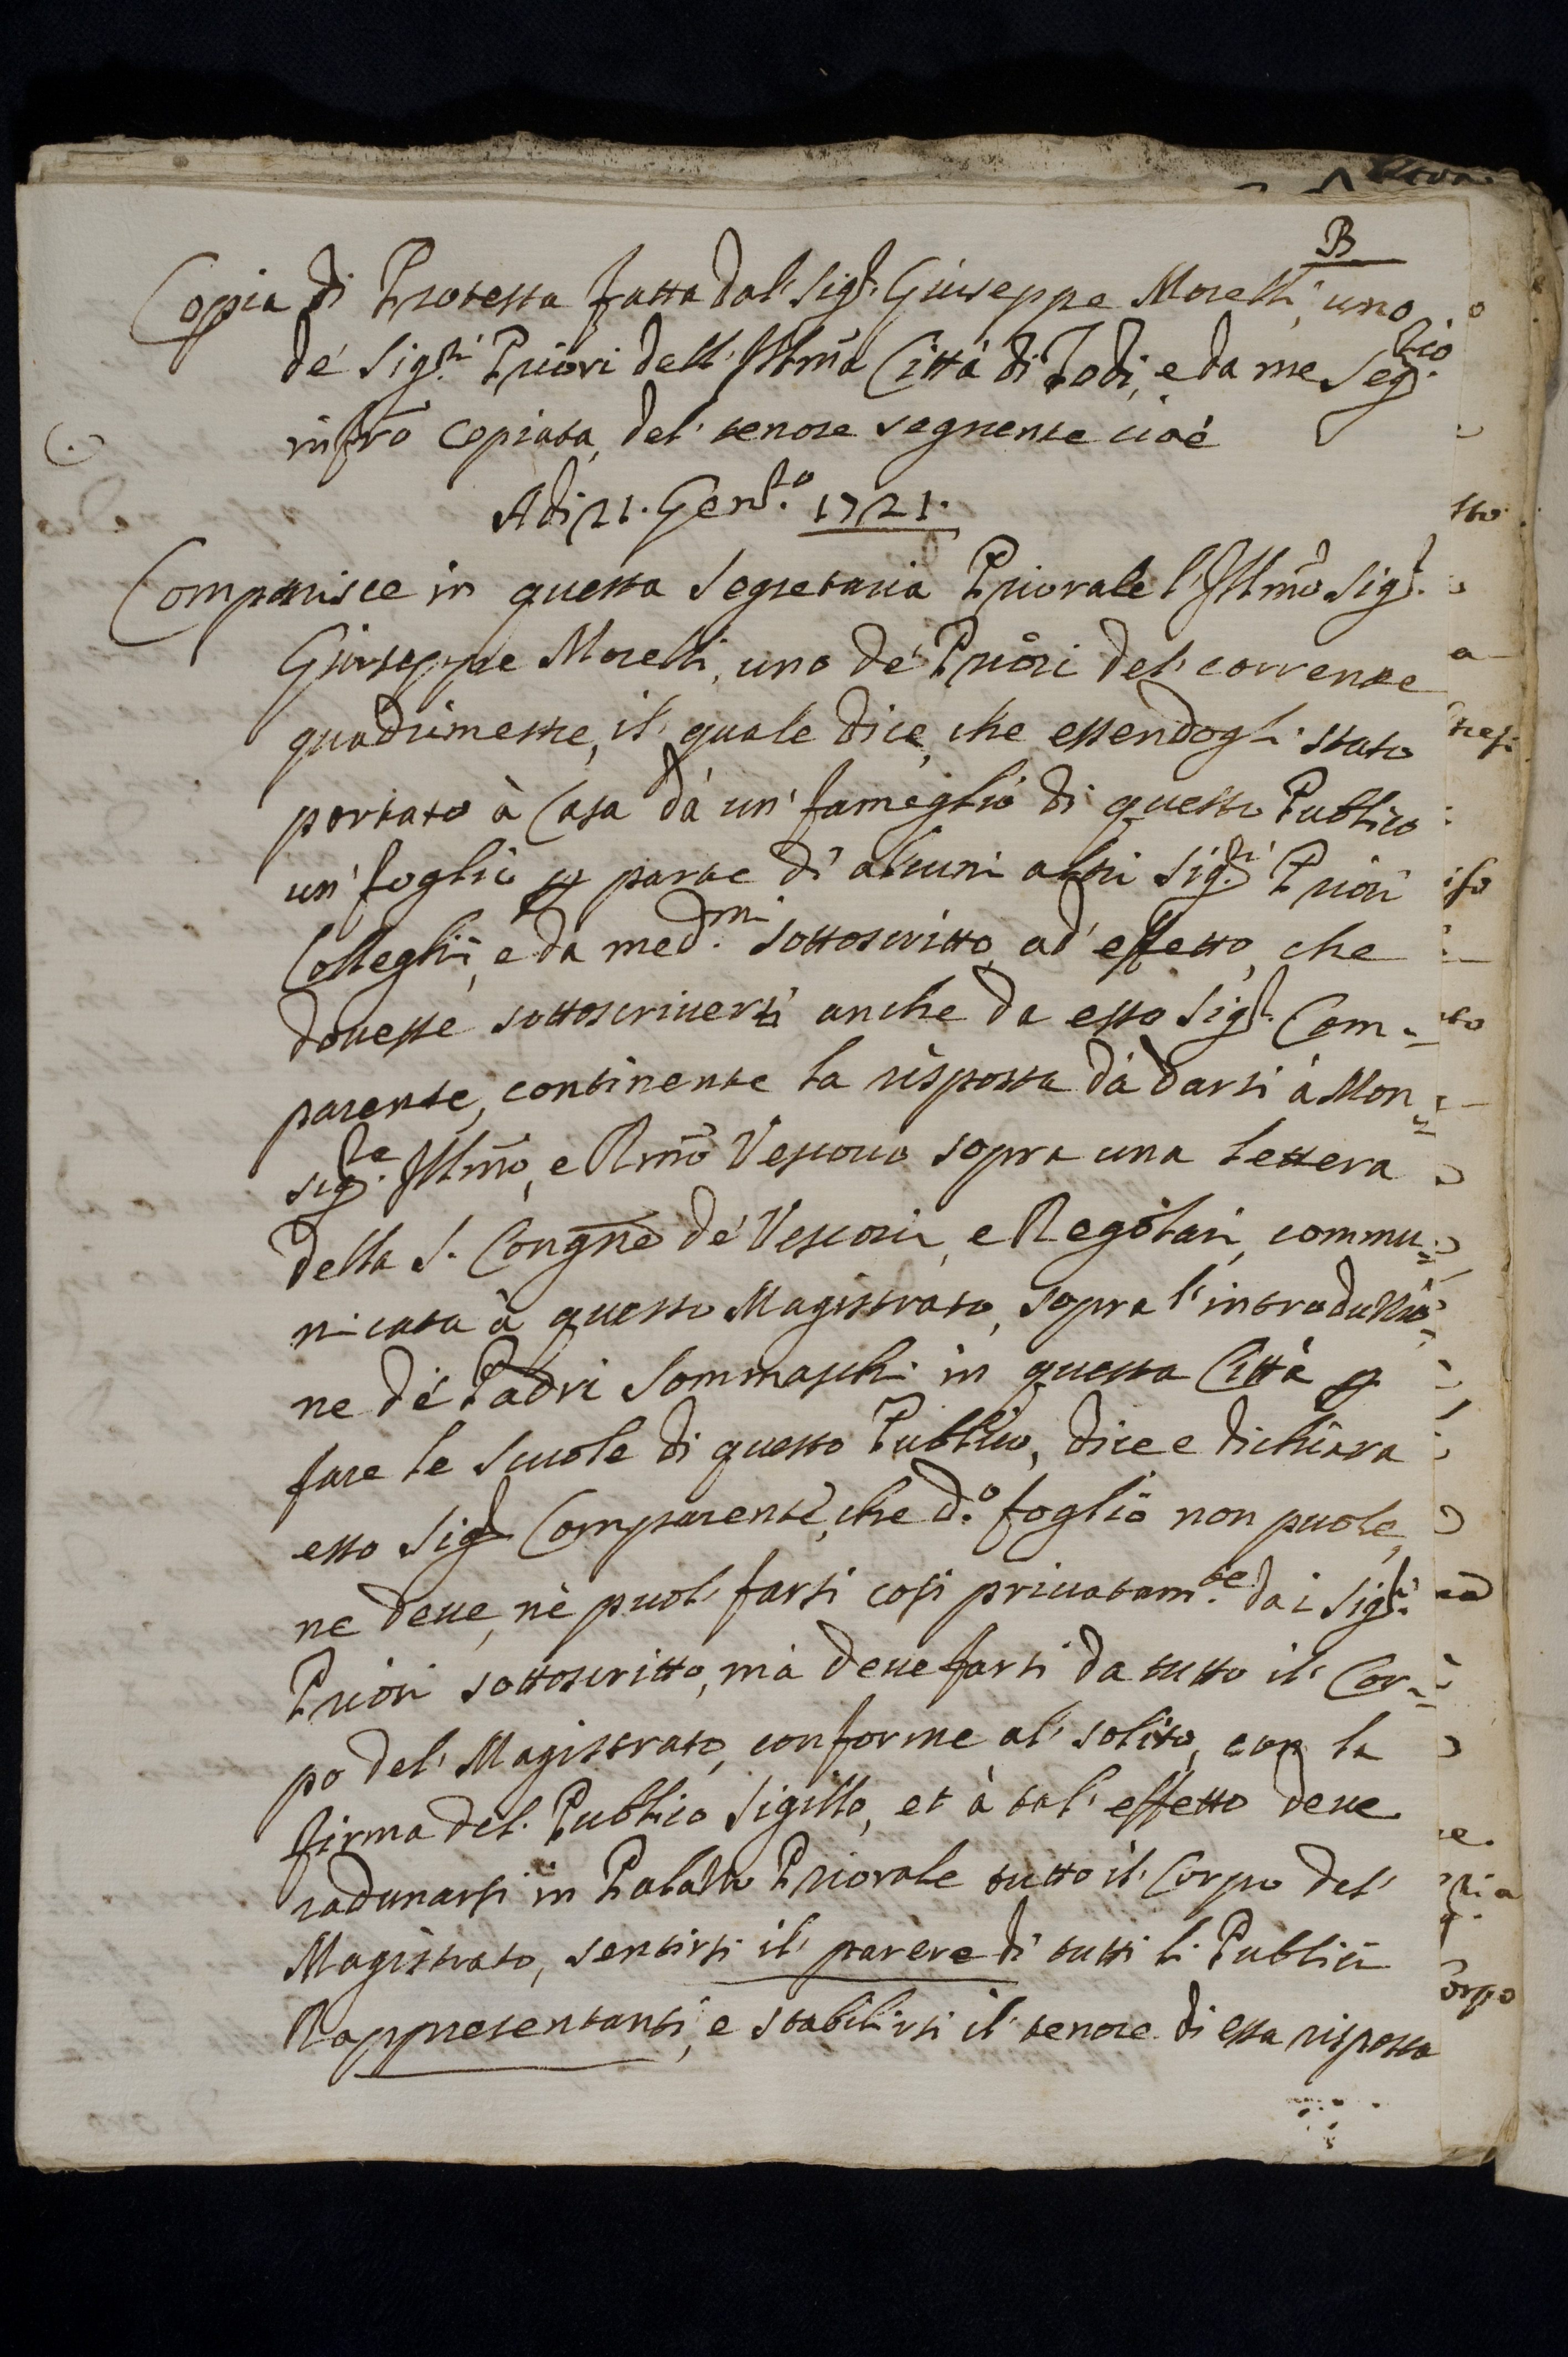 B
Copia di Protesta fatta dal Sig.r Giuseppe Morelli, uno
de Sig.ri Priori dell' Ill̃ma Città di Todi, e da me Seg.rio
infr̃o copiata, del tenore seguente cioè
Adi 21. Gen.ro 1721.
Comparisce in questa Segretaria Priorale l'Ill̃mo Sig.r
Giuseppe Morelli, uno de Priori del corrente
quadrimestre, il quale dice, che essendogli stato
portato à Casa da un' fameglio di questo Publico
un' foglio ꝑ parte di alcuni altri Sig.ri Priori
Colleghi, e da med.mi sottoscritto, ad effetto, che
douesse sottoscriuersi anche da esso Sig.r Com=
parente, continente la risposta dà darsi à Mon=
sig.re Ill̃mo, e Rm̃o Vescouo sopra una lettera
della S. Congñe de Vescovi, e Regolari, commu=
nicata à questo Magistrato, sopra l'introduttio=
ne de Padri Sommaschi in questa Città ꝑ
fare le scuole di questo Publico, dice e dichiara
esso Sig.r Comparente, che d.o foglio non puole,
ne deue, nè puol' farsi così priuatam.te dai Sig.ri
Priori sottoscritto, mà deue farsi da tutto il Cor=
po del Magistrato, conforme al solito, con la
firma del Publico Sigillo, et à tal' effetto deue
radunarsi in Palazzo Priorale tutto il Corpo del
Magistrato, sentirsi il parere di tutti li Publici
Rappresentanti, e stabilirsi il tenore di essa risposta